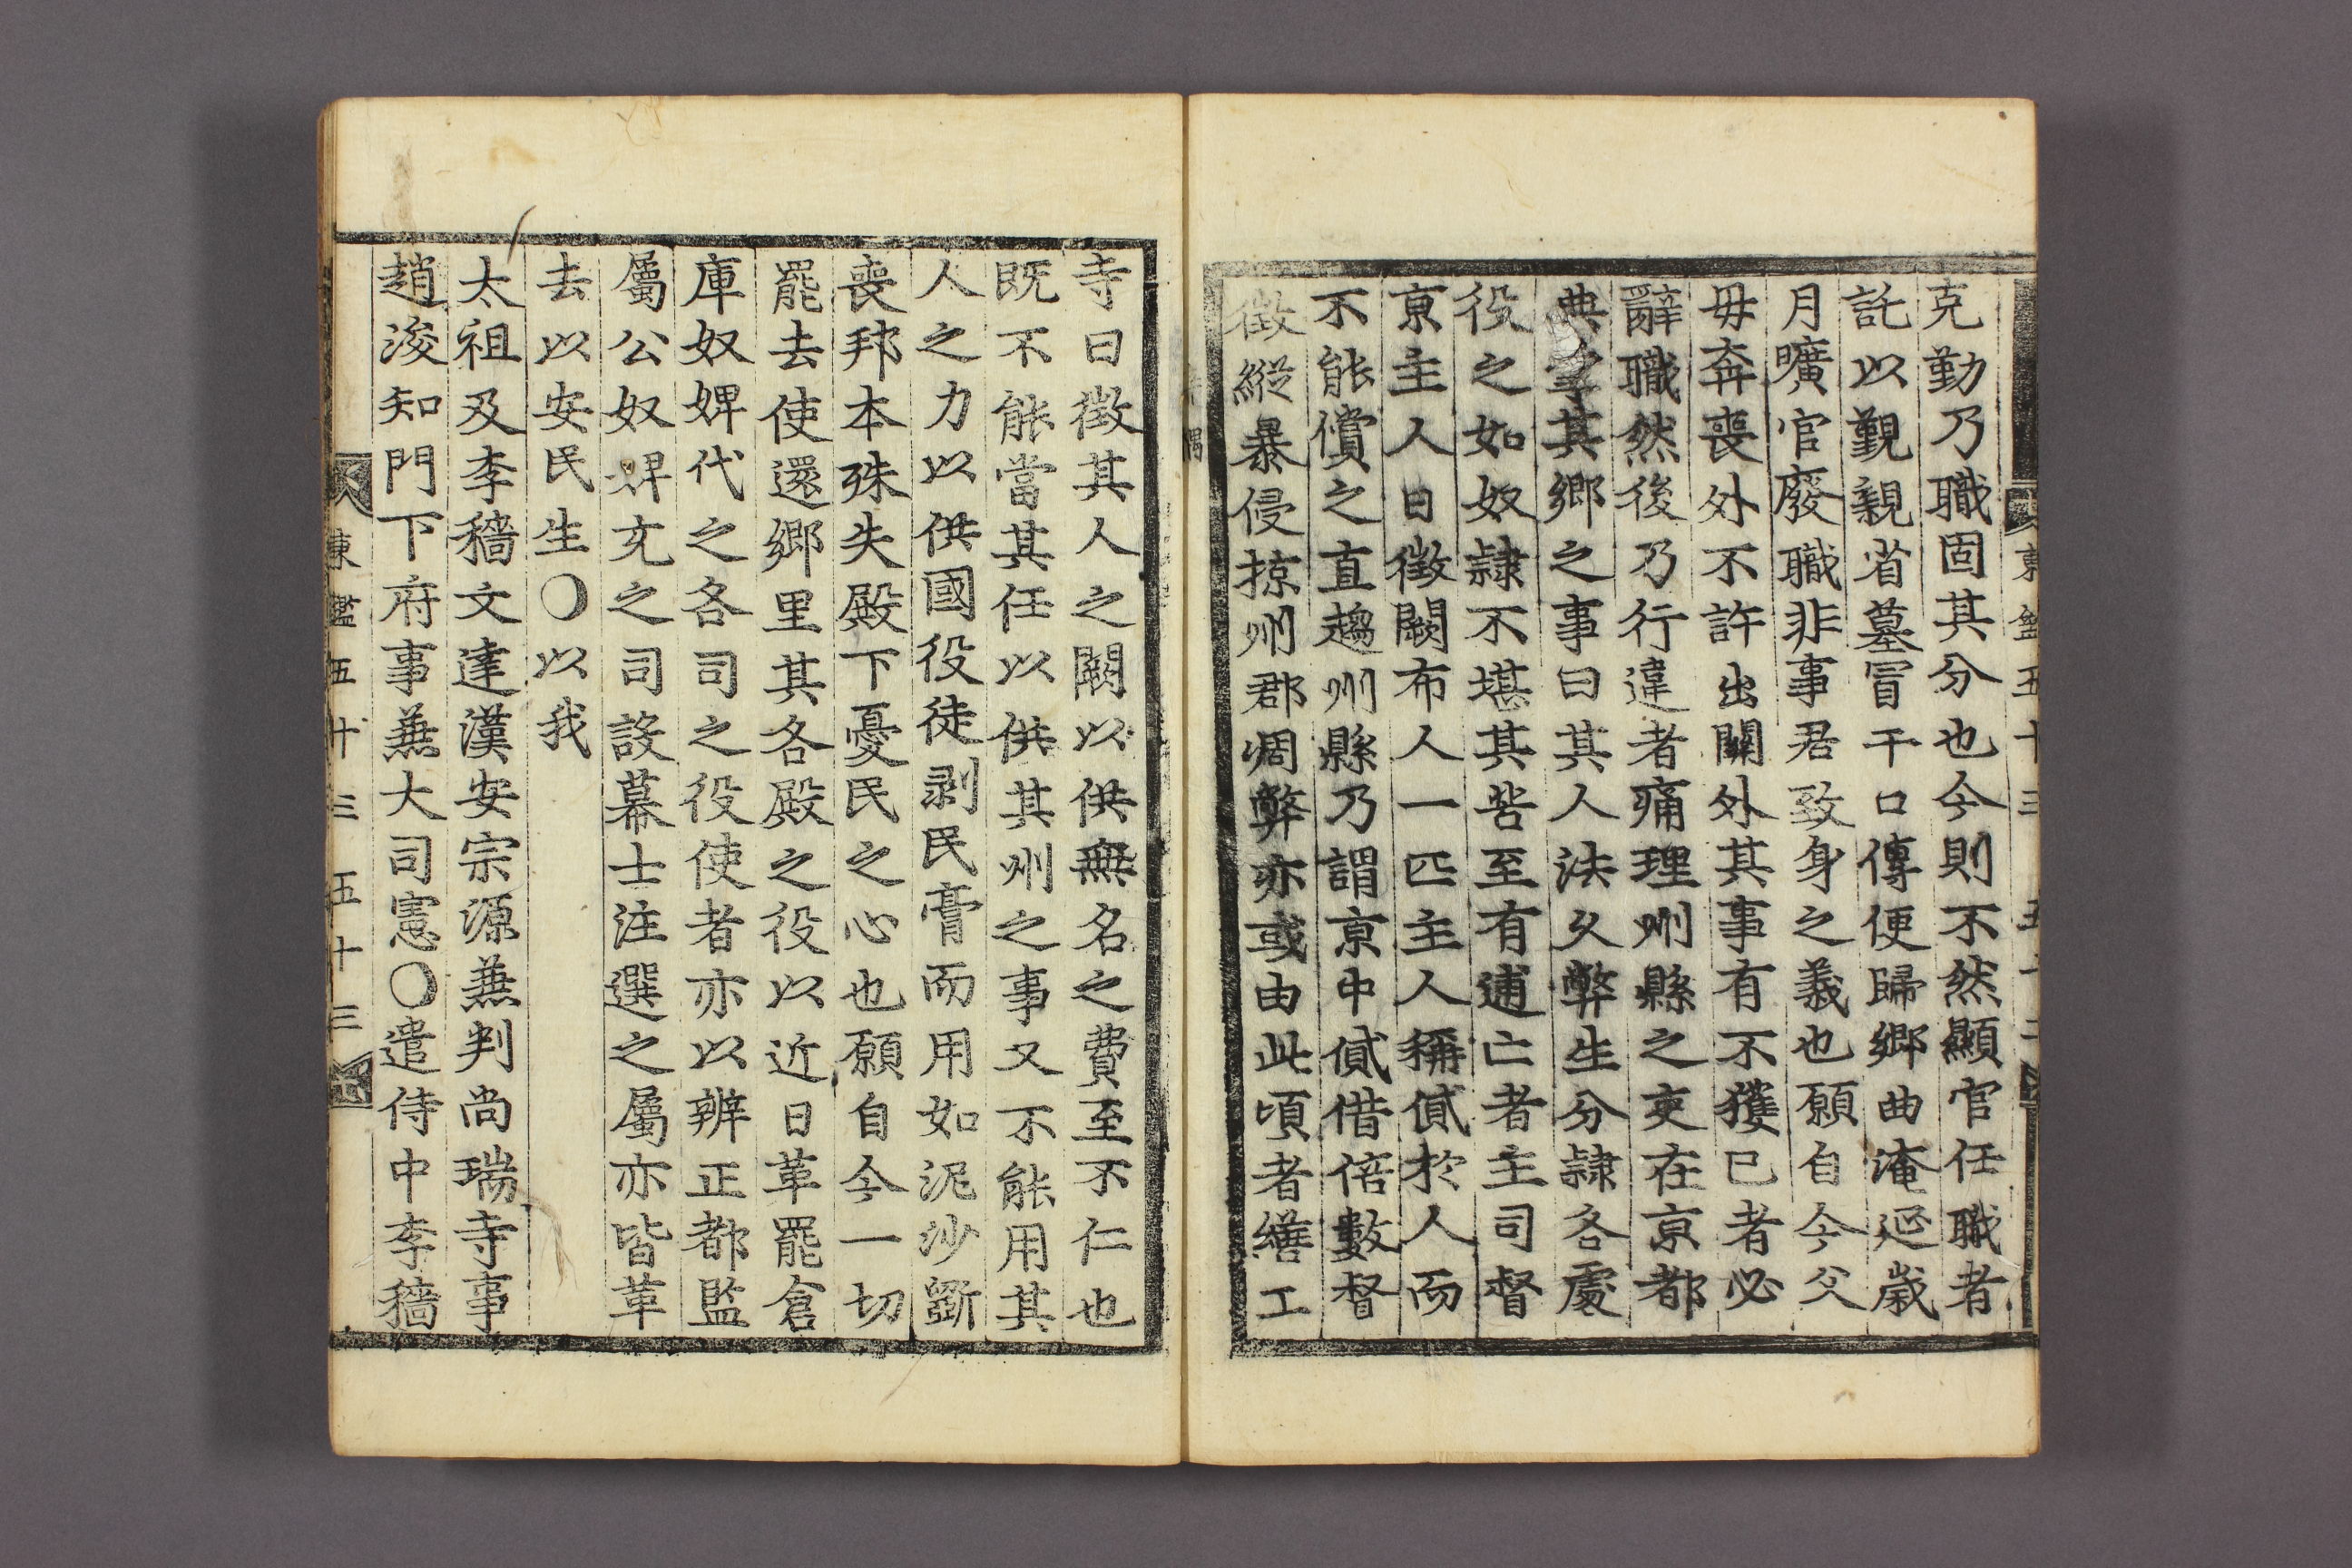 克勤乃職固其分也今則不然顯官任職者
託以覲親省墓冒干口傳便歸鄉曲淹延歲
月曠官廢職非事君致身之義也願自今父
母奔喪外不許出關外其事有不獲已者必
辭職然後乃行違者痛理州縣之吏在京都
典掌其鄉之事曰其人法久弊生分隷各處
役之如奴隷不堪其苦至有逋亡者主司督
京主人日徵闕布人一匹主人稱貣於人而
不能償之直趨州縣乃謂京中貣借倍數督
徵縱暴侵掠州郡凋弊亦或由此頃者繕工
寺曰徵其人之闕以供無名之費至不仁也
既不能當其任以供其州之事又不能用其
人之力以供國役徒剥民膏而用如泥沙斲
喪邦本殊失殿下憂民之心也願自今一切
罷去使還鄉里其各殿之役以近日革罷倉
庫奴婢代之各司之役使者亦以辨正都監
屬公奴婢充之司設幕士注選之屬亦皆革
去以安民生○以我
太祖及李穡文達漢安宗源兼判尚瑞寺事
趙浚知門下府事兼大司憲○遣侍中李穡
東鑑五十三 五十三